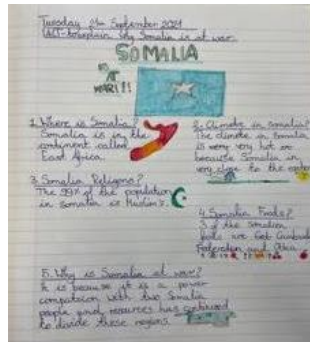 Tuesday 21st September 2021
LACT- to explain why Somalia is at war.
SOMALIA
IS
AT
WAR!!!
1. Where is Somalia?
Somalia is in the
continent called
East Africa.
2. Climate in Somalia?
The climate in Somalia
is very very hot
because Somalia is
very close to the
3. Somalia Religons?
The 99% of the population
in Somalia is Muslim's.
4. Somalia Foods?
3 of the Somalian
foods are
and
5. Why is Somalia at war?
It is because it is a power
with two Somalia
people and resources has continued
to divide these regions.